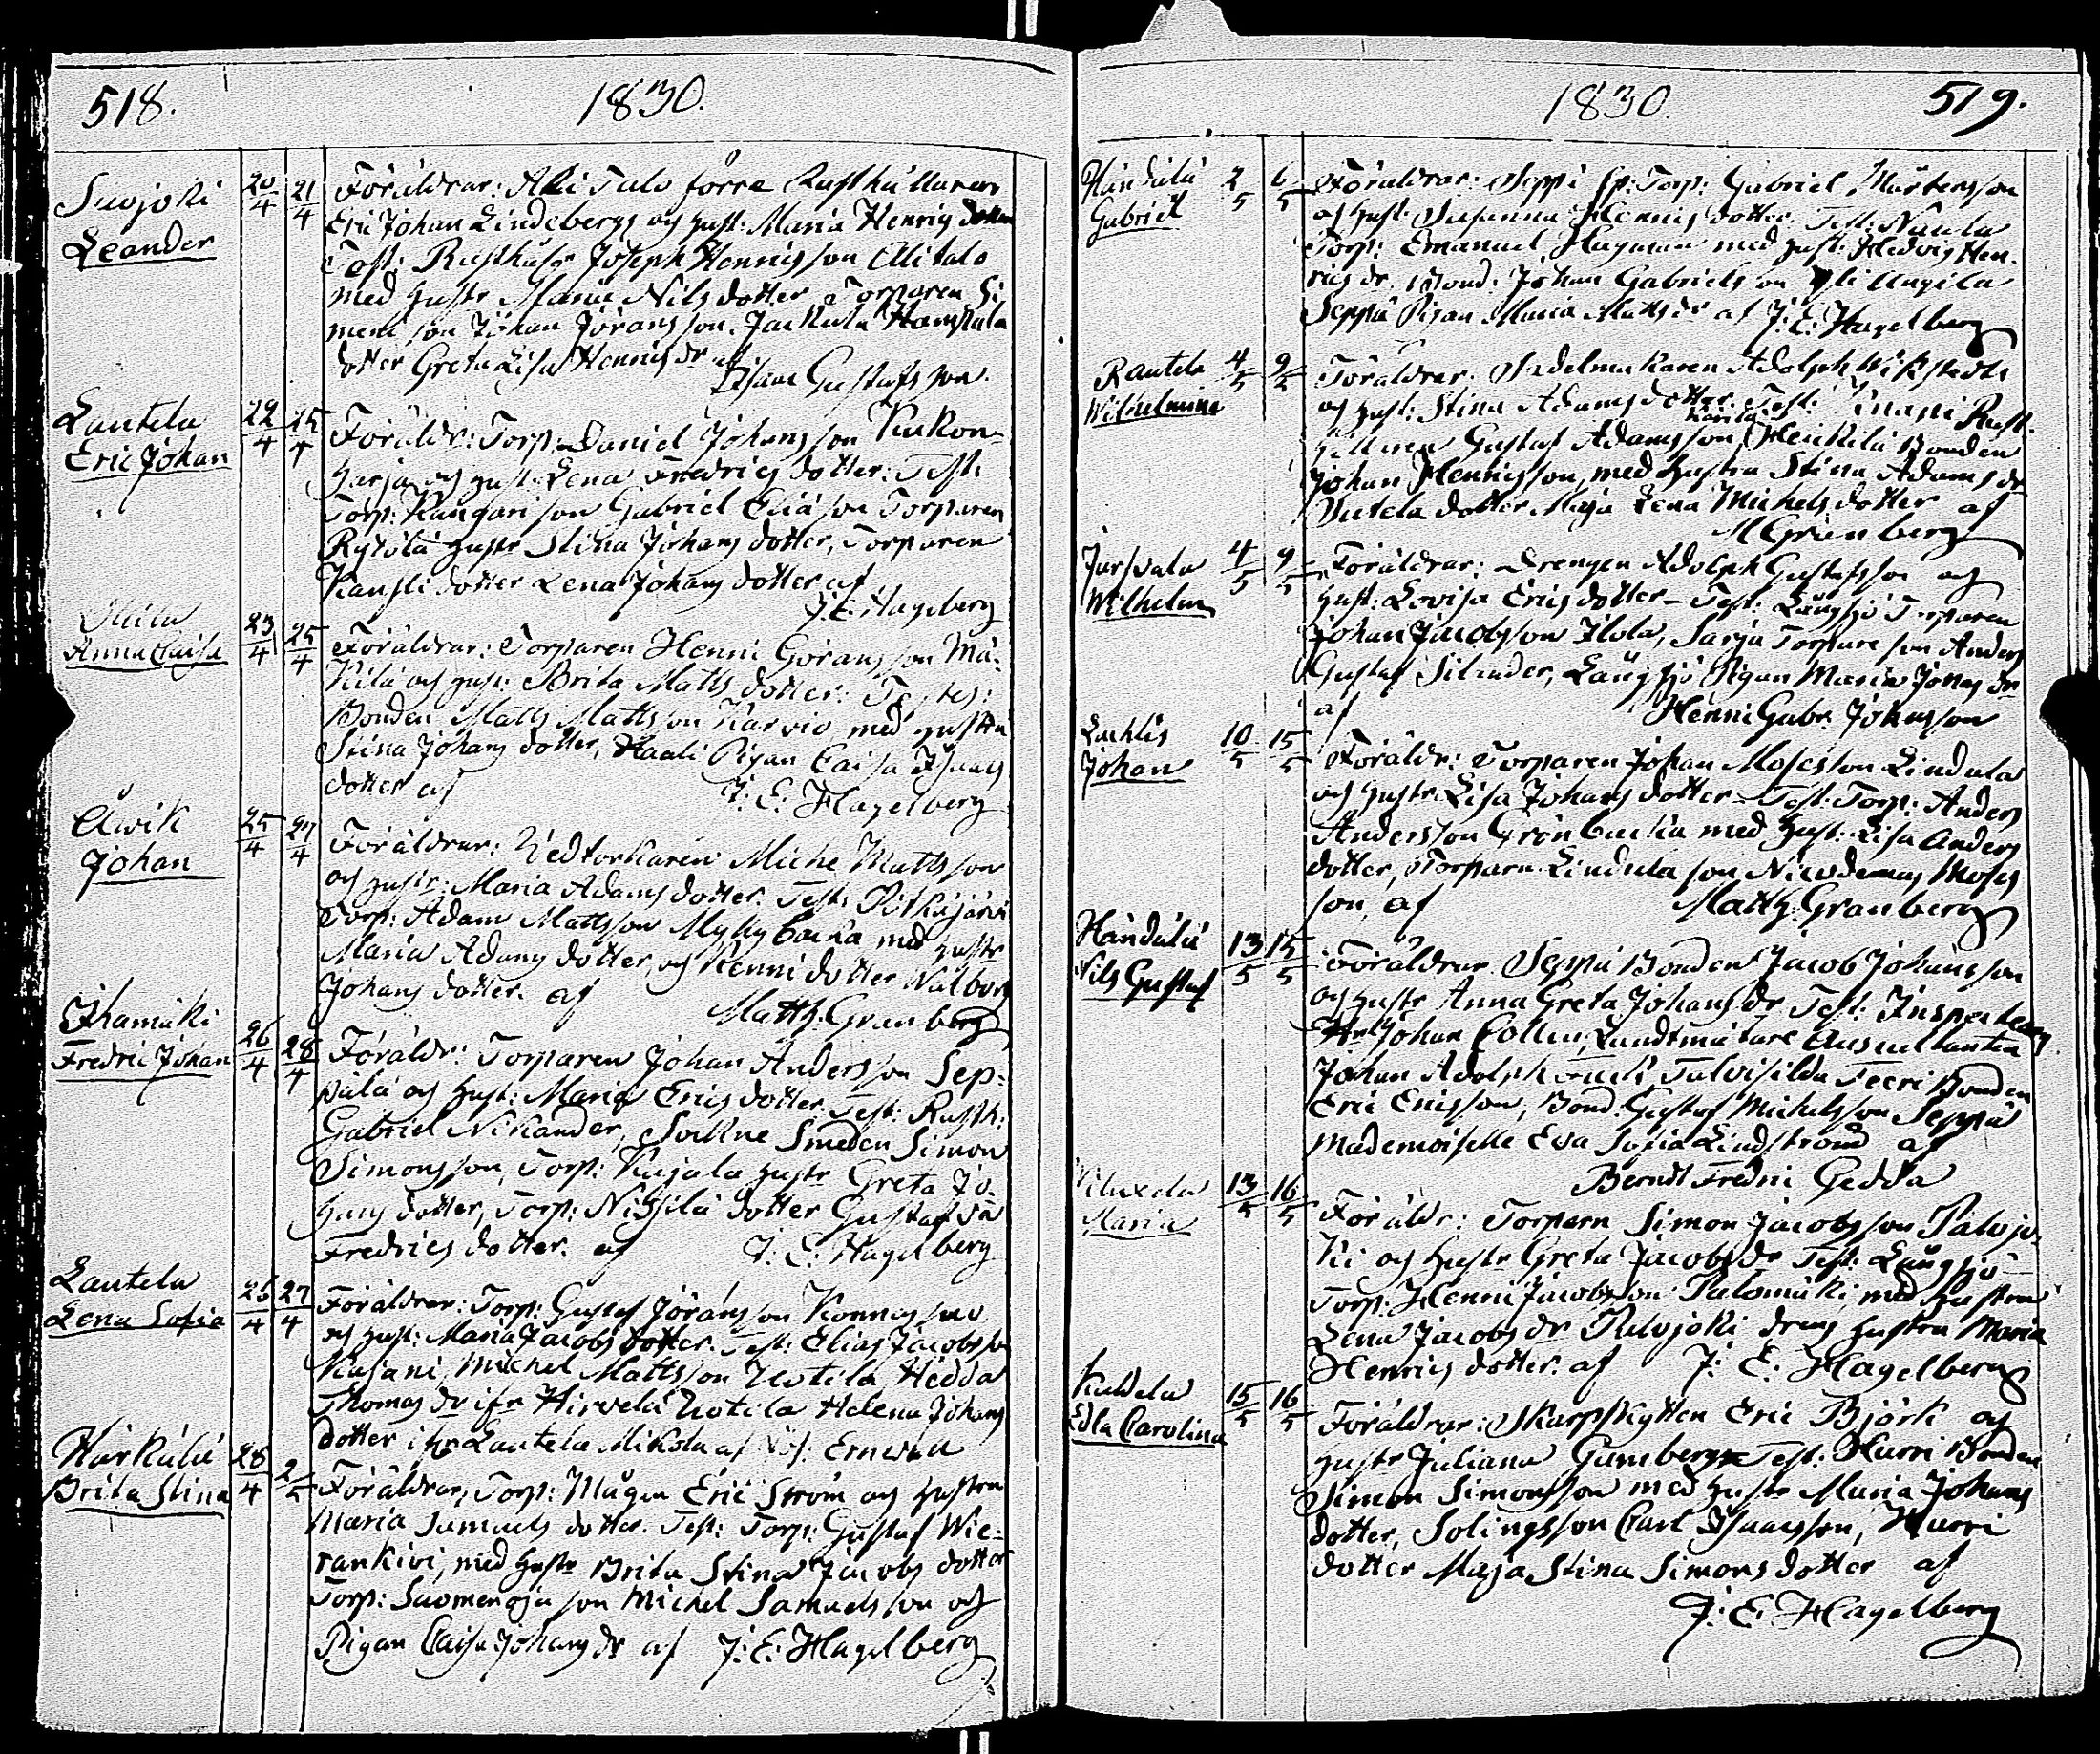 518. 1830.
Suojoki 20/4 21/4 Föräldrar: Ali Talo förre Rusthållaren
Leander Eric Johan Lindebergs och hust: Maria Henrigs dotter
Test: Rusthåls Joseph Henrigsson Alitalo
med hustr Maria Nils dotter, Torparen Si
meni son Johan Jöransson, Jackula
dotter Greta Lisa Henrigs dr af
Isaac Gustafsson.
Lautela 22/4 25/4 Föräldr: Torp: Daniel Johansson Kukon-
Eric Johan harja och hust: Lena Fredrics dotter: Test:
Torp: Kangari son Gabriel Eliasson Torparen
Rytölä hustr Stina Johans dotter, Torparen
Kansli dotter Lena Johans dotter af
J. E. Hagelberg
Anna Caisa 23/4 25/4 Föräldrar: Torparen Henric Göransson Mä-
kilä och hust: Brita Matts dotter: Testes:
Bonden Matts Mattsson Karvio med hustru
Stina Johans dotter, Haali Pigan Caisa Isaacs
dotter af J: E: Hagelberg
Awik 25/4 27/4 Föräldrar: Michel Mattsson
Johan och hustr: Maria Adams dotter. Test: Pitkäjärvi
Torp: Adam Mattsson Myllybacka med hustr
Maria Adams dotter, och Kenni dotter Walborg
Johans dotter. af Matth: Granberg
Fredric Johan 26/4 28/4 Föräldr: Torparen Johan Andersson Sep-
pälä och hust: Maria Erics dotter. Test: Rusth:
Gabriel Nikander, Sockne Smeden Simon
Simonsson, Torp: Kujala hustr Greta Jo-
hans dotter, Torp: Nissilä dotter Gustafva
Fredrics dotter. af J. E. Hagelberg
Lautela 26/4 27/4 Föräldrar: Torp: Gustaf Jöransson Konnossuo
Lena Sofia och hust: Maria Jacobs dotter. Test: Elias Jacobsson
Kujani, Michel Mattsson Uotila Hedda
Thomas dr ifr Hirvelä Uotila Helena Johans
dotter ifr Lautela Mikola af
Härkälä 28/4 2/5 Föräldrar, Torp: Mågen Eric Ström och hustrun
Brita Stina Maria Samuels dotter. Test: Torp: Gustaf Wie-
rankivi, med hustr Brita Stina Jacobs dotter
Torp: Suomenoja son Michel Samuelsson och
Pigan Caisa Johans dr af J: E: Hagelberg
1830. 519.
Händälä 2/5 6/5 Föräldrar: Seppi Sp: Torp: Gabriel Mårtensson
Gabriel och hust: Susanna Henrigs dotter. Test: Naula
Torp: Emanuel Hagman med hust: Hedvig Hen-
rics dr. Bond: Johan Gabrielsson
Seppä Pigan Maria Matts dr af J. E. Hagelberg
Rautela 4/5 9/5 Föräldrar. Sadelmakaren Adolph Wikstedts
Wilhelmina och hust: Stina Adams dotter. Test: Knapi Rust-
hållaren Gustaf Adamsson, Heickilä Bonden
Johan Henrigsson, med hustru Stina Adams dr
dotter Maja Lena Michels dotter af
M Granberg
Jursvala 4/5 9/5 Föräldrar: Drengen Adolph Gustafsson och
Wilhelm hust: Lovisa Erics dotter - Test: Långsjö Torparen
Johan Jacobsson Ilola, Sarja Torpare son Anders
Gustaf Silander, Långsjö Pigan Maria Jonas dr
af Henric Gabr. Johnsson
Lachlis 10/5 15/5 Föräldr: Torparen Johan Mosesson Lindula
Johan och hustr: Lisa Johans dotter - Test: Torp: Anders
Andersson Grönbacka med hust: Lisa Anders
dotter, Torparn Lindula son Nicodemus Moses
son, af Matth: Granberg
Händälä 13/5 15/5 Föräldrar. Seppä Bonden Jacob Johansson
Nils Gustaf och hustr Anna Greta Johans dr Test: Inspectoren
Hr Johan Collin, Landtmätare Auscultanten
Johan Adolph Talvisilda Teeri Bonden
Eric Ericsson, Bond. Gustaf Michelsson Seppä
Mademoiselle Eva Sofia Lindström af
Berndt Fredric Gedda
13/5 16/5 Föräldr: Torparn Simon Jacobsson Palojo-
Maria ki och hustr Greta Jacobs dr Test: Långsjö
Torp: Henric Jacobsson Palomäki med hustru
Lena Jacobs dr Palojoki dreng hustru Maria
Henrics dotter. af J: E: Hagelberg
Kuldela 15/5 16/5 Föräldrar: Skarpskytten Eric Björk och
Edla Carolina hustr Juliana Gumberg. Test: Hurri Bonden
Simon Simonsson med hustr Maria Johans
dotter, Solingsson Carl Isaacsson, Hurri
dotter Maja Stina Simons dotter af
J: E. Hagelberg